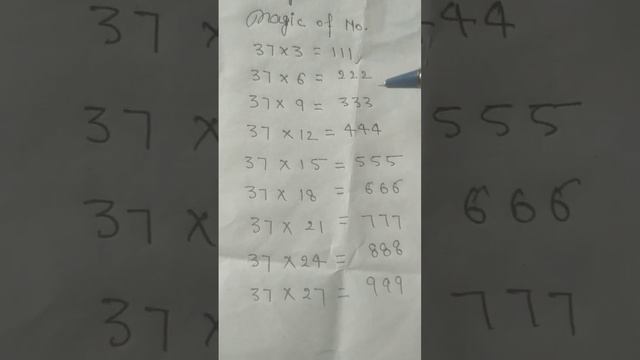 Magic of No.
37 × 3 = 111
37 × 6 = 222
37 × 9 = 333
37 × 12 = 444
37 × 15 = 555
37 × 18 = 666
37 × 21 = 777
37 × 24 = 888
37 × 27 = 999